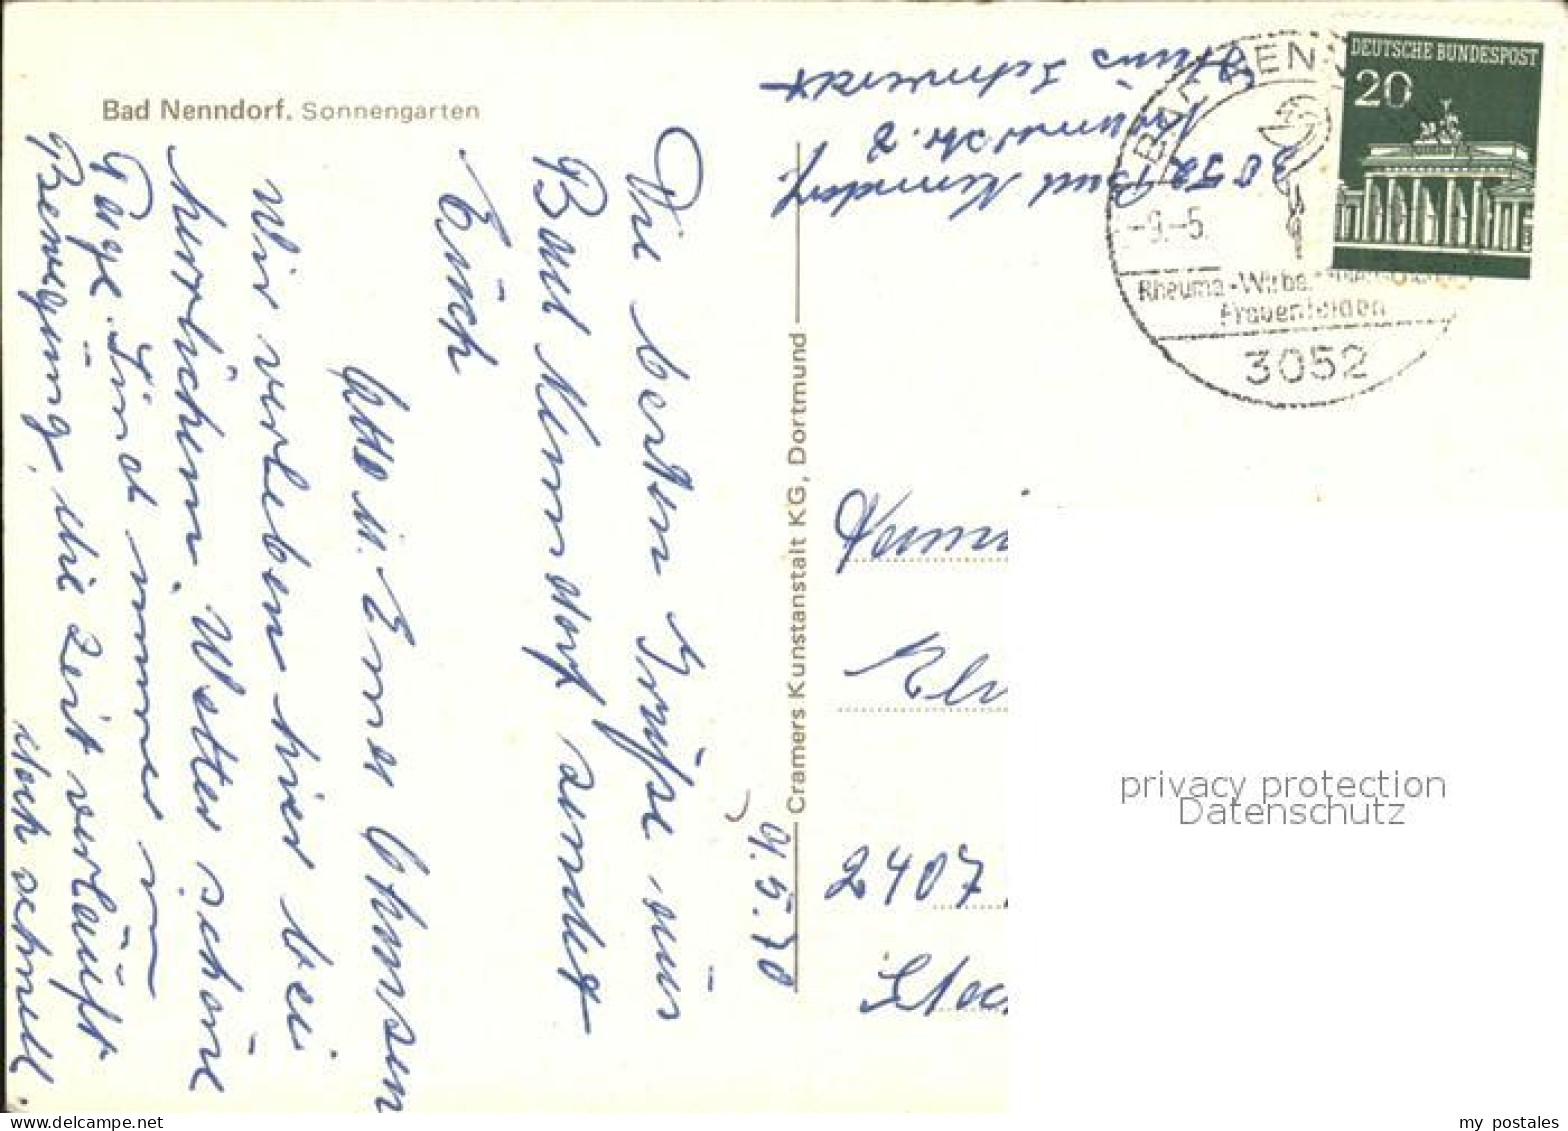 Bad Nenndorf. Sonnengarten
Die besten Grüße aus
Bad Nenndorf sendet
Euch
Otto u. Erna
Wir verleben hier bei
herrlichem Wetter schöne
Tage. Sind immer in
Bewegung, die Zeit verläuft
doch schnell.
9.5.70
Cramers Kunstanstalt KG, Dortmund
Hans
Str. 8
3052 Bad Nenndorf.
DEUTSCHE BUNDESPOST
20
BAD NENN
-9.-5.
Rheuma-Wirbe
Frauenleiden
3052
2407
privacy protection
Datenschutz
my postales